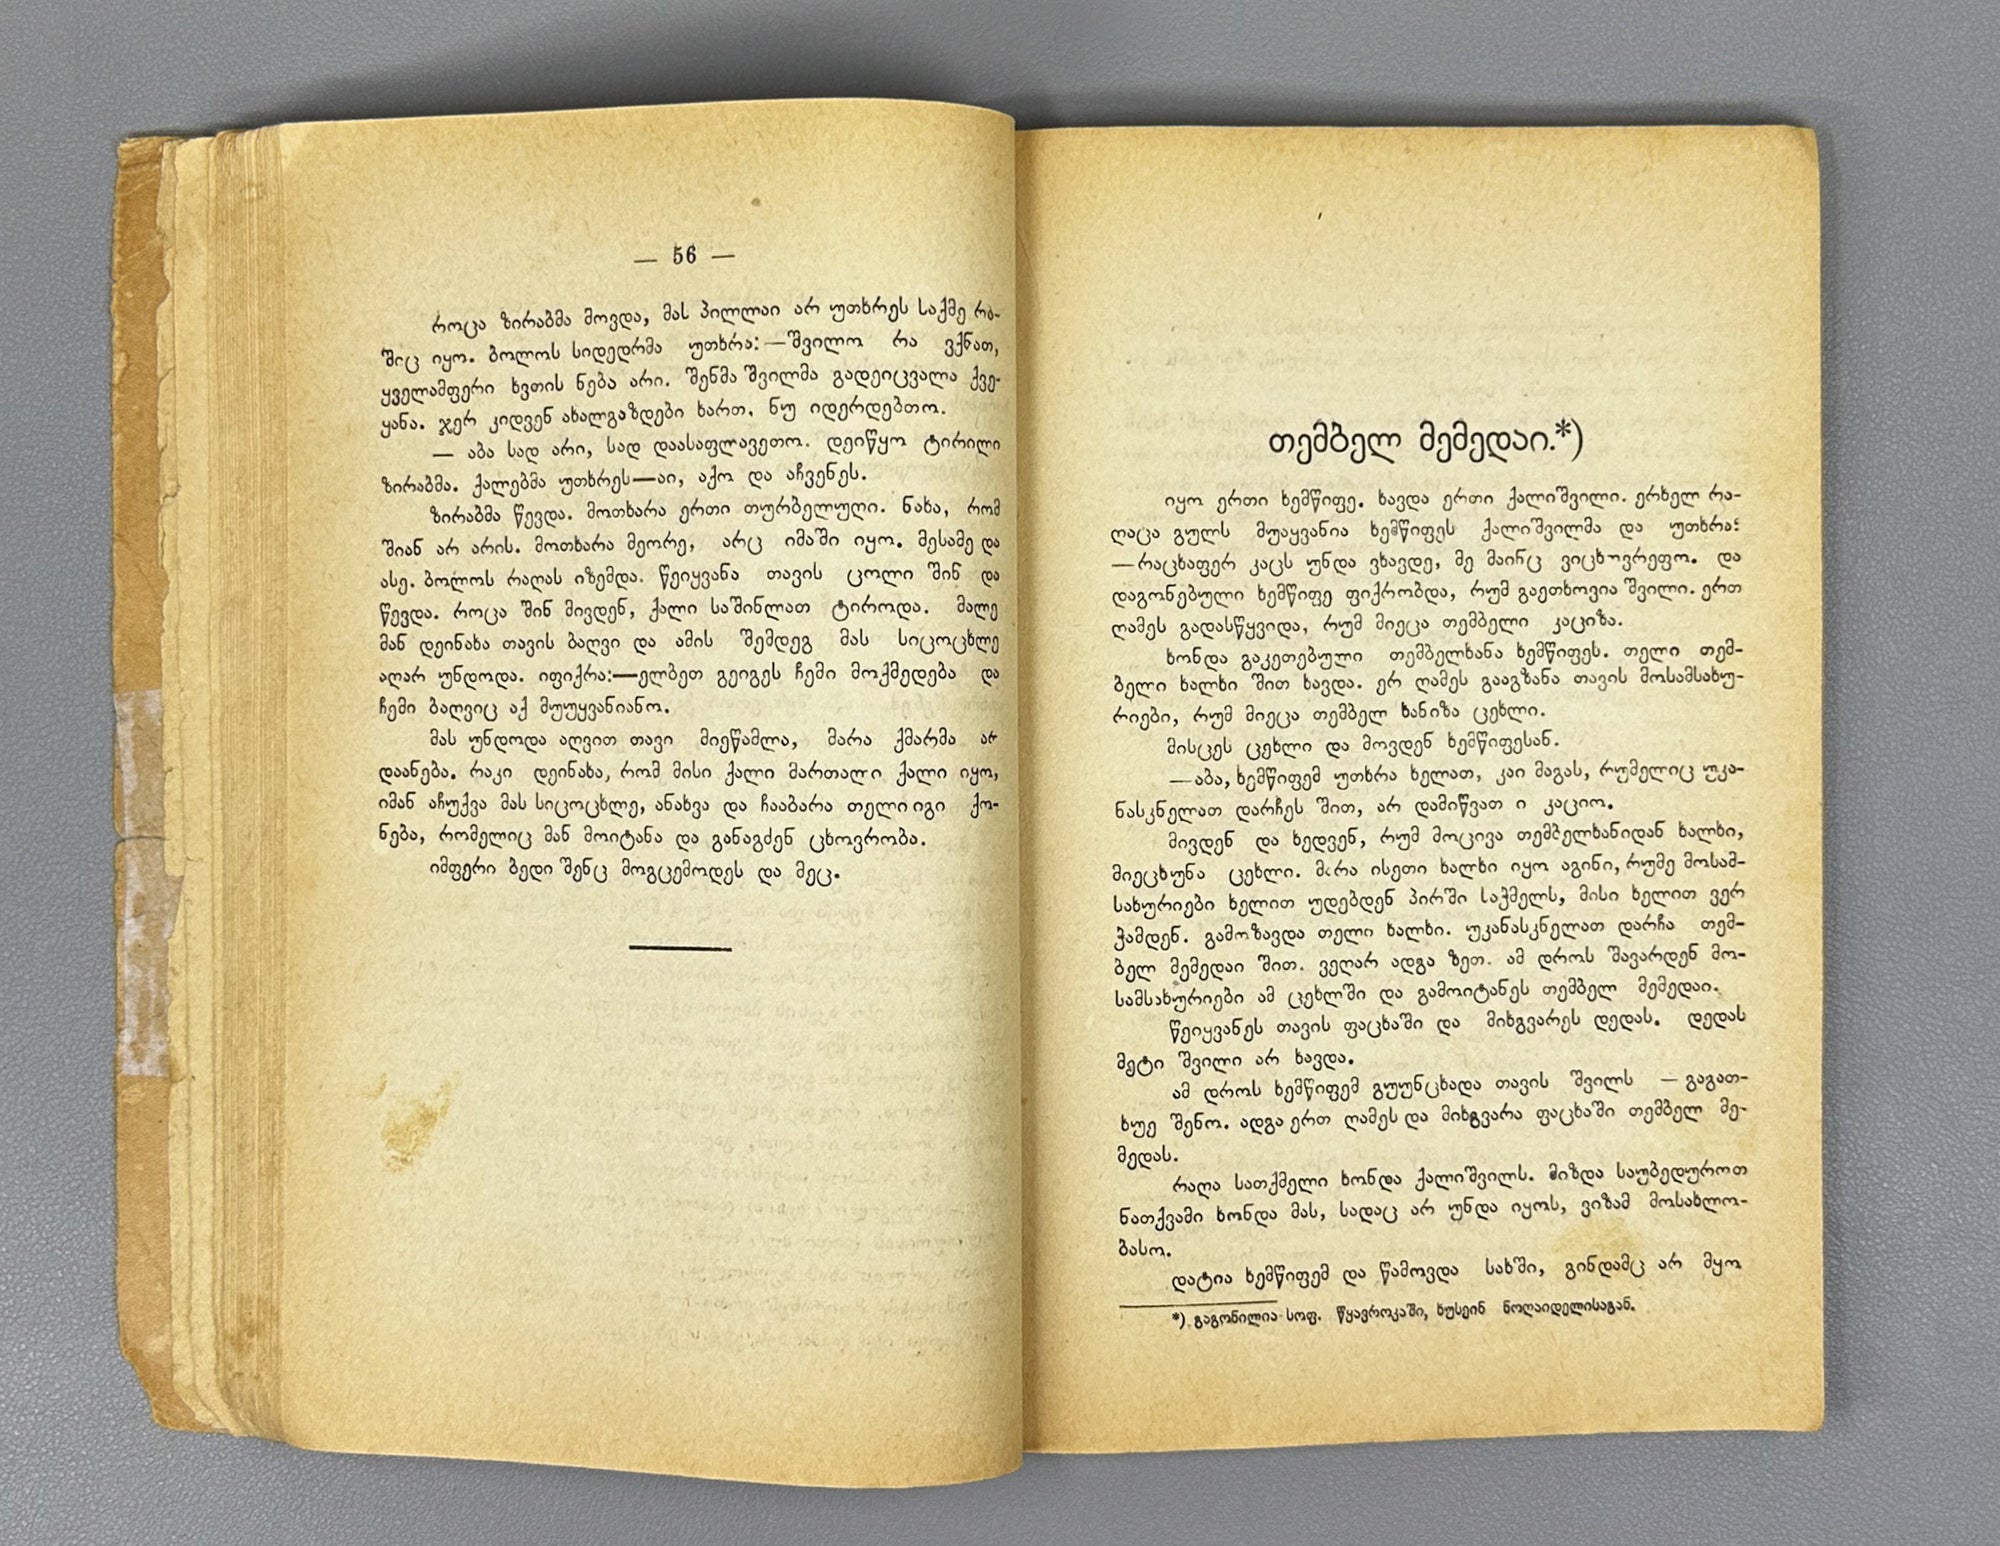 — 56 —
როცა ზირაბმა მოვდა, მას პილლაი არ უთხრეს საქმე რა-
შიც იყო. ბოლოს სიდედრმა უთხრა: — შვილო რა ვქნათ,
ყველამფერი ხვთის ნება არი. შენმა შვილმა გადეიცვალა ქვე-
ყანა. ჯერ კიდვენ ახალგაზდები ხართ. ნუ იდერდებთო.
— აბა სად არი, სად დაასაფლავეთო. დეიწყო ტირილი
ზირაბმა. ქალებმა უთხრეს—აი, აქო და აჩვენეს.
ზირაბმა წევდა. მოთხარა ერთი თურბელუღი. ნახა, რომ
შიან არ არის. მოთხარა მეორე, არც იმაში იყო. მესამე და
ასე. ბოლოს რაღას იზემდა. წეიყვანა თავის ცოლი შინ და
წევდა. როცა შინ მივდენ, ქალი საშინლათ ტიროდა. მალე
მან დეინახა თავის ბაღვი და ამის შემდეგ მას სიცოცხლე
აღარ უნდოდა. იფიქრა:—ელბეთ გეიგეს ჩემი მოქმედება და
ჩემი ბაღვიც აქ მუუყვანიანო.
მას უნდოდა აღვით თავი მიეწამლა, მარა ქმარმა არ
დაანება. რაკი დეინახა, რომ მისი ქალი მართალი ქალი იყო,
იმან აჩუქვა მას სიცოცხლე, ანახვა და ჩააბარა თელი იგი ქო-
ნება, რომელიც მან მოიტანა და განაგძენ ცხოვრობა.
იმფერი ბედი შენც მოგცემოდეს და მეც.
თემბელ მემედაი.*)
იყო ერთი ხემწიფე. ხავდა ერთი ქალიშვილი. ერხელ რა-
ღაცა გულს მუაყვანია ხემწიფეს ქალიშვილმა და უთხრა:
— რაცხაფერ კაცს უნდა ვხავდე, მე მაინც ვიცხოვრეფო. და
დაგონებული ხემწიფე ფიქრობდა, რუმ გაეთხოვია შვილი. ერთ
ღამეს გადასწყვიდა, რუმ მიეცა თემბელი კაციზა.
ხონდა გაკეთებული თემბელხანა ხემწიფეს. თელი თემ-
ბელი ხალხი შით ხავდა. ერ ღამეს გააგზანა თავის მოსამსახუ-
რიები, რუმ მიეცა თემბელ ხანიზა ცეხლი.
მისცეს ცეხლი და მოვდენ ხემწიფესან.
—აბა, ხემწიფემ უთხრა ხელათ, კაი მაგას, რუმელიც უკა-
ნასკნელათ დარჩეს შით, არ დამიწვათ ი კაციო.
მივდენ და ხედვენ, რუმ მოცივა თემბელხანიდან ხალხი,
მიეცხუნა ცეხლი. მარა ისეთი ხალხი იყო აგინი, რუმე მოსამ-
სახურიები ხელით უდებდენ პირში საჭმელს, მისი ხელით ვერ
ჭამდენ. გამოზავდა თელი ხალხი. უკანასკნელათ დარჩა თემ-
ბელ მემედაი შით. ვეღარ ადგა ზეთ. ამ დროს შავარდენ მო-
სამსახურიები ამ ცეხლში და გამოიტანეს თემბელ მემედაი.
წეიყვანეს თავის ფაცხაში და მიხგვარეს დედას. დედას
მეტი შვილი არ ხავდა.
ამ დროს ხემწიფემ გუუნცხადა თავის შვილს — გაგათ-
ხუე შენო. ადგა ერთ ღამეს და მიხგვარა ფაცხაში თემბელ მე-
მედას.
რაღა სათქმელი ხონდა ქალიშვილს. მიზდა საუბედუროთ
ნათქვამი ხონდა მას, სადაც არ უნდა იყოს, ვიზამ მოსახლო-
ბასო.
დატია ხემწიფემ და წამოვდა სახში, გინდამც არ მყო
*) გაგონილია სოფ. წყავროკაში, ხუსეინ ნოღაიდელისაგან.